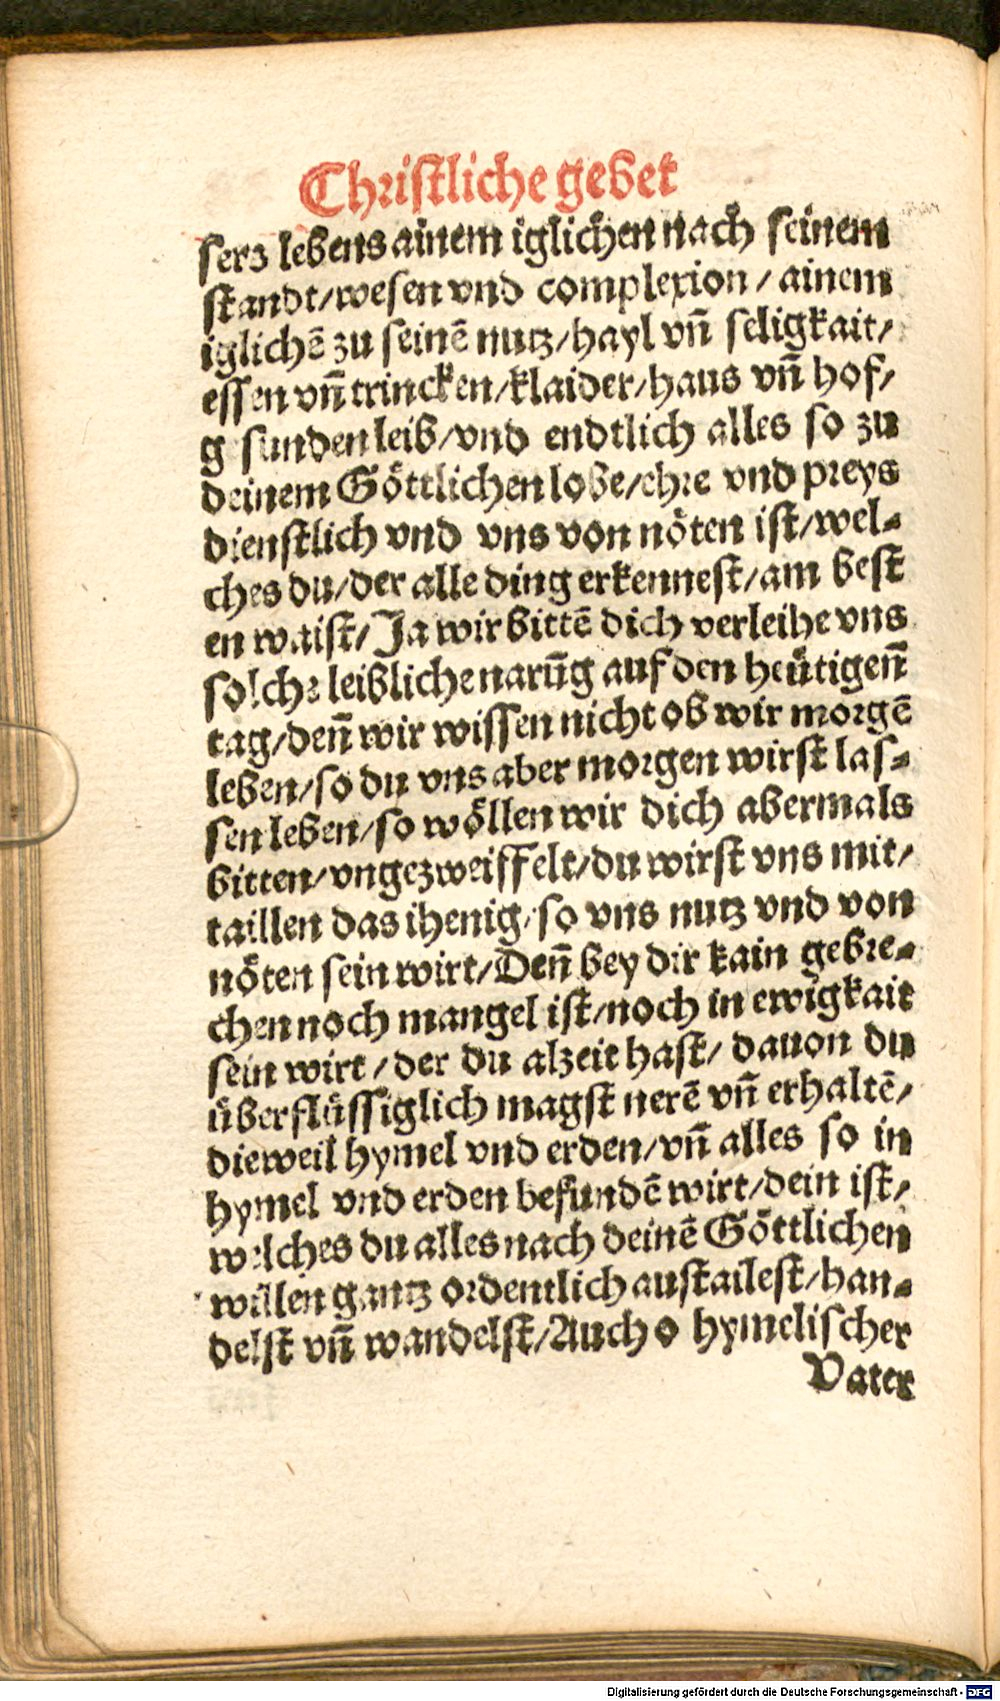 Christliche gebet
sers lebens ainem iglichen nach seinem
standt/wesen vnd complexion/ainem
iglichē zu seinē nutz/hayl vn̄ seligkait/
essen vn̄ trincken/klaider/haus vn̄ hof/
g sunden leib/vnd endtlich alles so zu
deinem Göttlichen lobe/ehre vnd preys
dienstlich vnd vns von nöten ist/wel⸗
ches du/der alle ding erkennest/am best
en waist/Ja wir bittē dich verleihe vns
solche leibliche narūg auf den heütigen̄
tag/den̄ wir wissen nicht ob wir morgē
leben/so du vns aber morgen wirst las⸗
sen leben/so wöllen wir dich abermals
bitten/vngezweiffelt/du wirst vns mit/
taillen das ihenig/so vns nutz vnd von
nöten sein wirt/Den̄ bey dir kain gebre⸗
chen noch mangel ist/noch in ewigkait
sein wirt/der du alzeit hast/dauon du
überflüssiglich magst nerē vn̄ erhaltē/
dieweil hymel vnd erden/vn̄ alles so in
hymel vnd erden befundē wirt/dein ist/
welches du alles nach deinē Göttlichen
willen gantz ordentlich austailest/han⸗
delst vn̄ wandelst/Auch o hymelischer
Vater
Digitalisierung gefördert durch die Deutsche Forschungsgemeinschaft - DFG